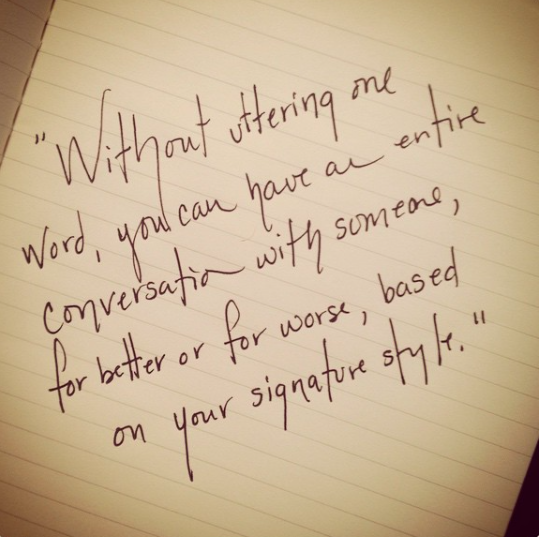 "Without uttering one
word, you can have an entire
conversation with someone,
for better or for worse, based
on your signature style."